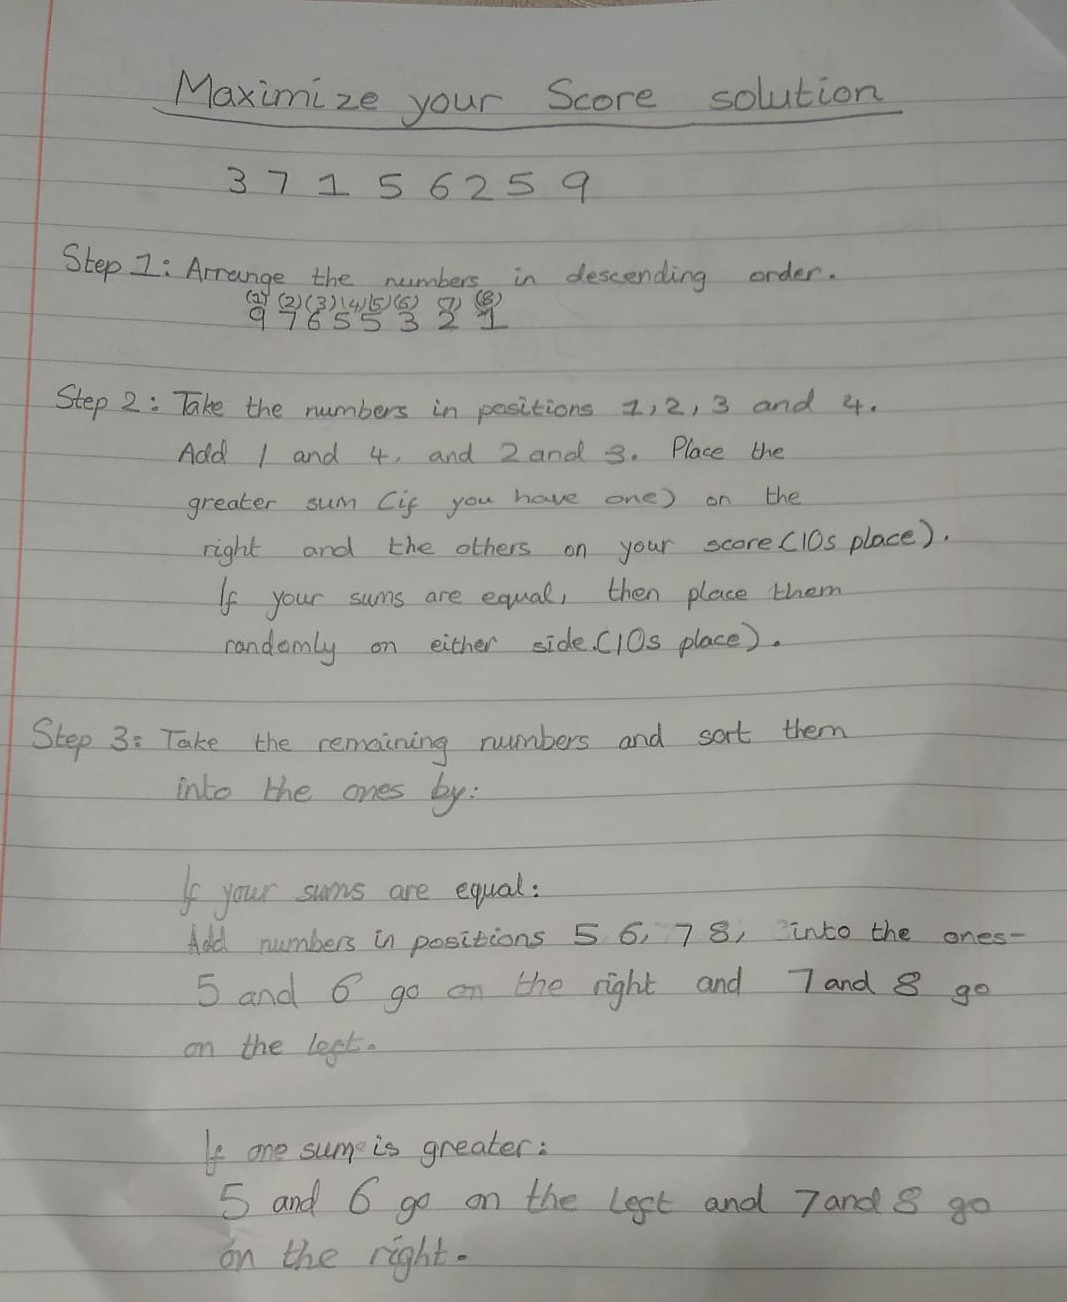 Maximize your Score solution
3 7 1 5 6 2 5 9
Step 1: Arrange the numbers in descending order.
(1) (2) (3) (4) (5) (6) (7) (8)
9 7 6 5 5 3 2 1
Step 2: Take the numbers in positions 1, 2, 3 and 4.
Add 1 and 4, and 2 and 3. Place the
greater sum (if you have one) on the
right and the others on your score (10s place).
If your sums are equal, then place them
randomly on either side. (10s place).
Step 3: Take the remaining numbers and sort them
into the ones by:
If your sums are equal:
Add numbers in positions 5 6, 7 8, into the ones-
5 and 6 go on the right and 7 and 8 go
on the left.
If one sum is greater:
5 and 6 go on the left and 7 and 8 go
on the right.